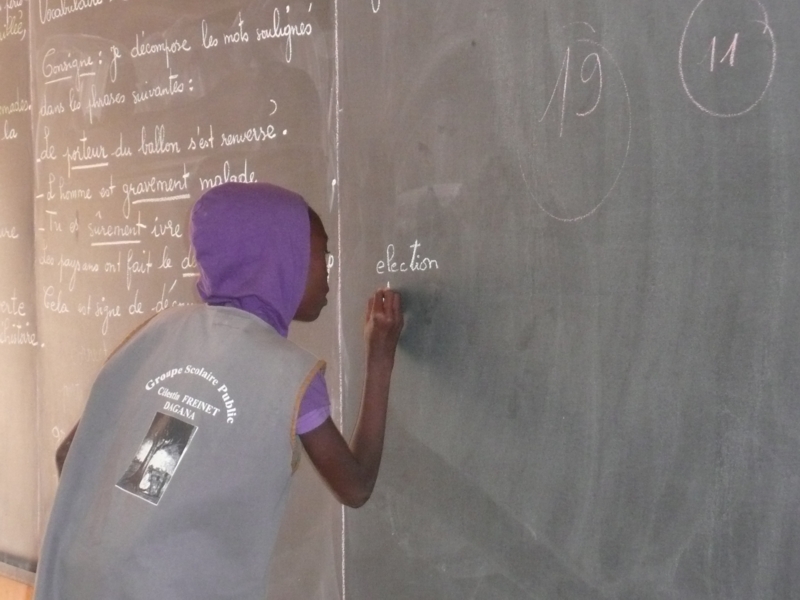 Vocabulaire
Consigne : je décompose les mots soulignés
dans les phrases suivantes :
- Le porteur du ballon s'est renversé.
- L'homme est gravement malade
- Tu es sûrement ivre
Les paysans ont fait le
Cela est signe de
la
19
11
election
Groupe Scolaire Public
Célestin FREINET
DAGANA